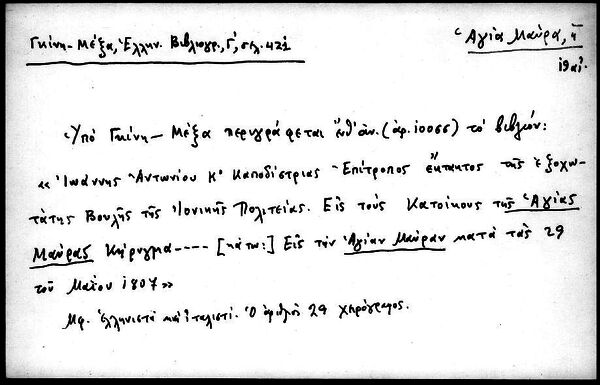 Γκίνη – Μέξα, Ἑλλην. Βιβλιογρ., Γ΄, σελ. 421
Ἁγία Μαύρα, ἡ
19 αἰ.
Ὑπό Γκίνη – Μέξα περιγράφεται ὑπ' ἀν. (ἀρ. 10055) τό βιβλίον:
« Ἰωάννης Ἀντωνίου Κ. Καποδίστριας Ἐπίτροπος ἔκτακτος τῆς ἐξοχω-
τάτης Βουλῆς τῆς Ἰονικῆς Πολιτείας. Εἰς τοὺς Κατοίκους τῆς Ἁγίας
Μαύρας Κήρυγμα ---- [κάτω:] Εἰς τὴν Ἁγίαν Μαύραν κατὰ τὰς 29
τοῦ Μαΐου 1807 »
Μφ. ἑλληνιστί καί ἰταλιστί. Ὁ ἀριθμός 29 χειρόγραφος.